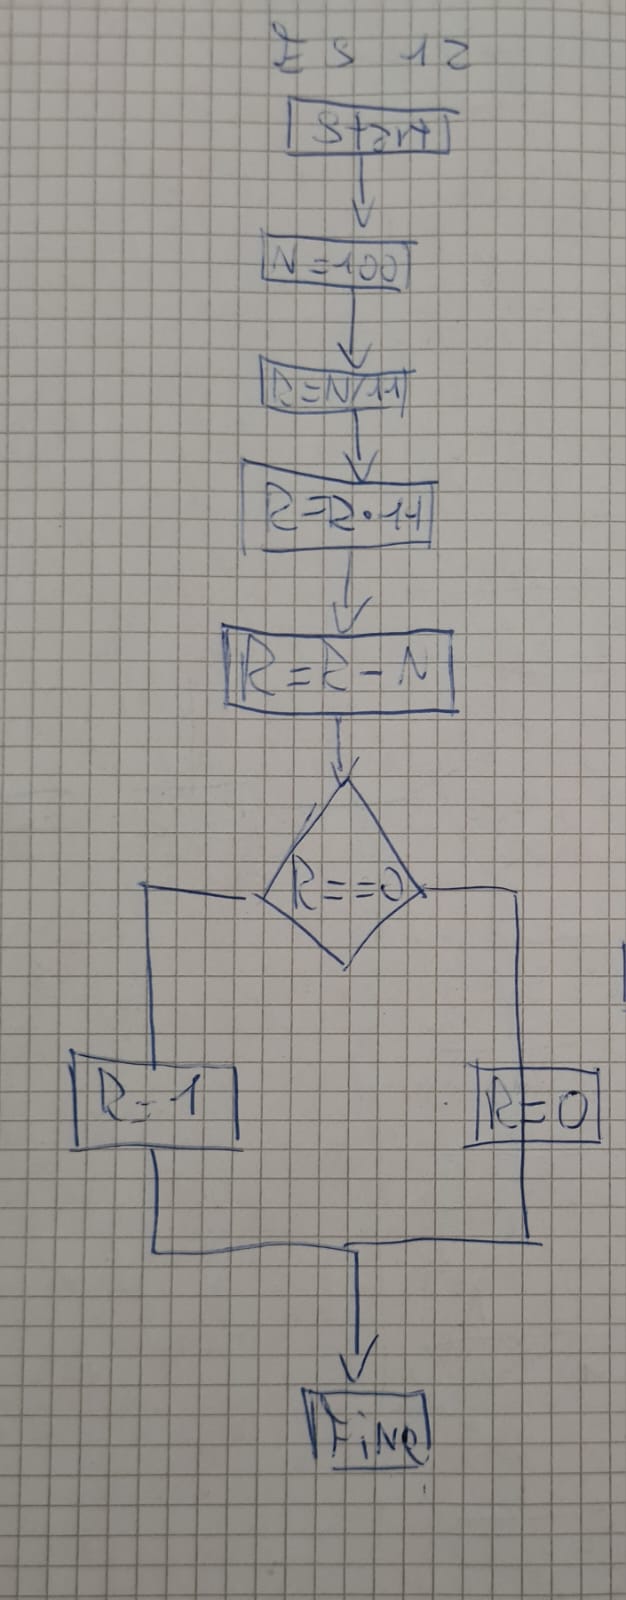 ES 12
Start
N=100
R=N/11
R=R·11
R=R-N
R==0
R=1
R=0
FiNe